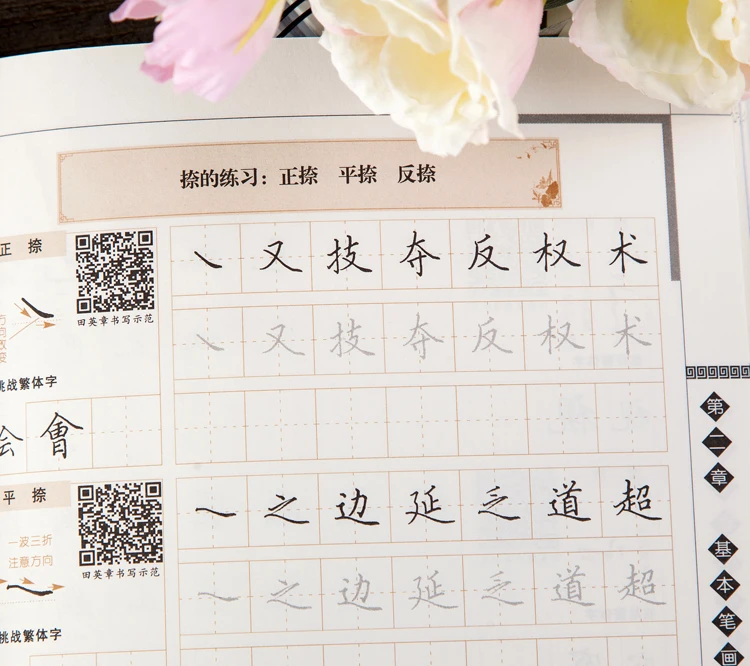 捺的练习：正捺 平捺 反捺
正捺
田英章书写示范
㇏又技夺反权术
又技夺反权术
挑战繁体字
会會
平捺
一波三折
注意方向
田英章书写示范
㇏之边延乏道超
之边延乏道超
挑战繁体字
第二章 基本笔画